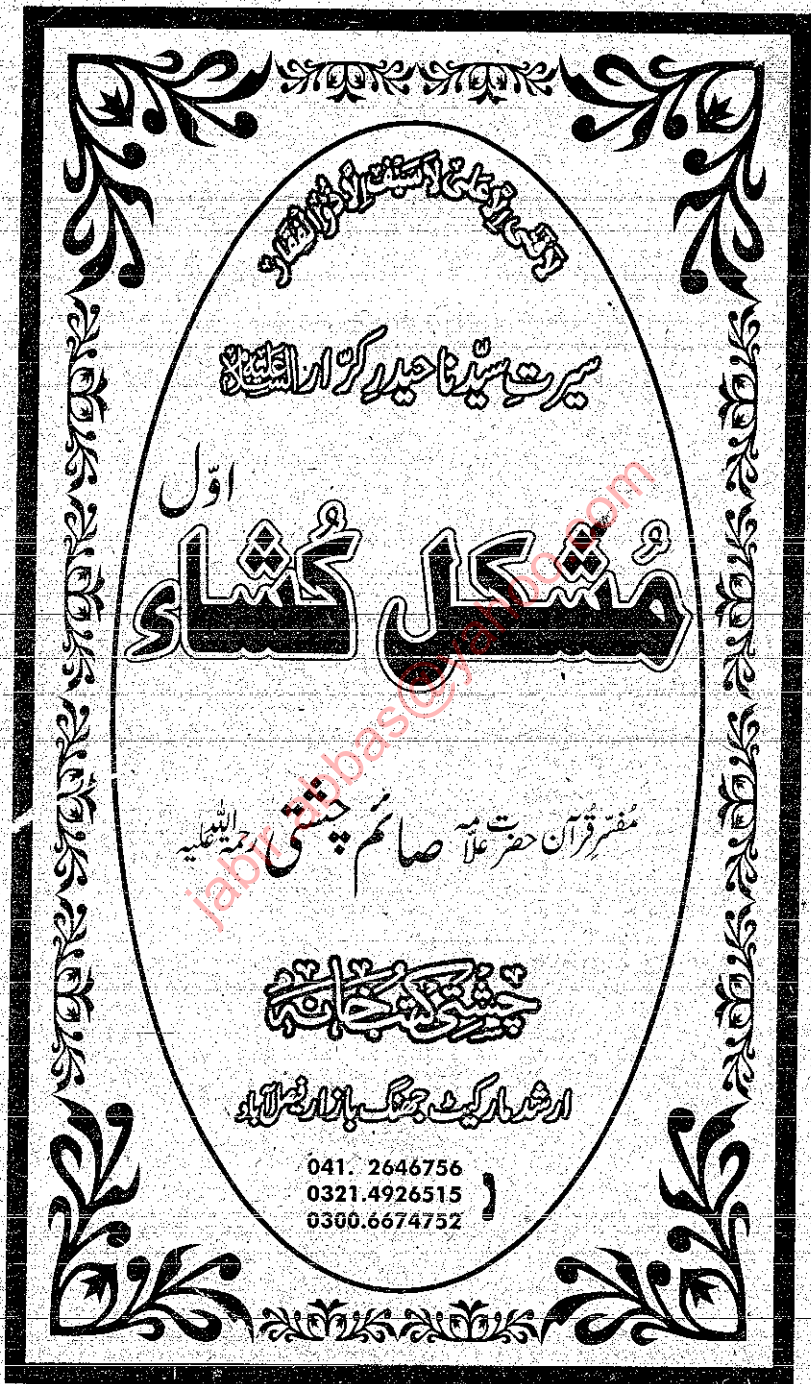 لَا فَتٰی اِلَّا عَلِیْ لَا سَیْفَ اِلَّا ذُوالْفِقَار
سیرتِ سیّدنا حیدرِ کرّار علیہ السلام
اوّل
مُشکل کُشاء
مُفسّرِ قُرآن حضرت علّامہ صائم چشتی رحمۃ اللہ علیہ
چشتی کتب خانہ
ارشد مارکیٹ جھنگ بازار فیصل آباد
041. 2646756
0321.4926515
0300.6674752
jabir.abbas@yahoo.com